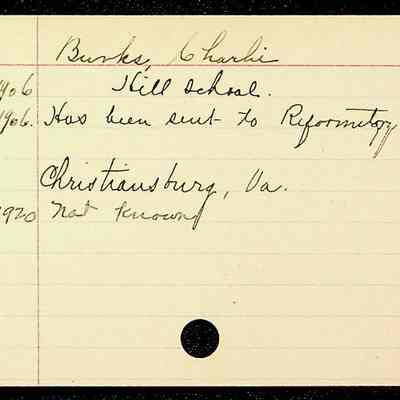 Burks, Charlie
1906 Hill school.
1906. Has been sent to Reformitory
Christiansburg, Va.
1920 Not known